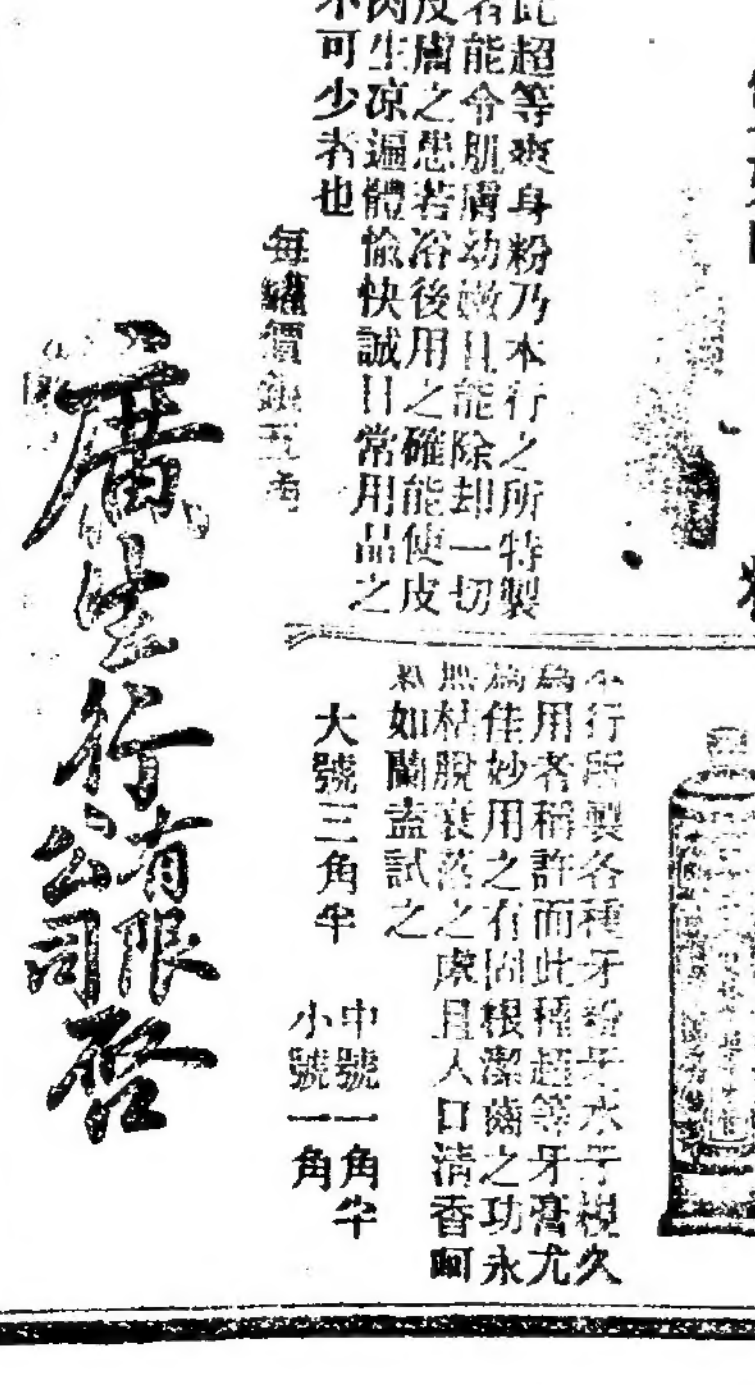 此超等爽身粉乃本行之所特製
者能令肌膚幼嫩且能除却一切
皮膚之患若浴後用之確能使皮
肉生凉遍體愉快誠日常用品之
不可少者也
每罐價銀五
本行所製各種牙粉牙水牙梘久
為用者稱許而此種超等牙膏尤
為佳妙用之有固根潔齒之功永
無枯脫衰落之慮且入口清香呵
氣如蘭盍試之
大號三角半
中號一角半
小號一角
廣生行有限公司啓